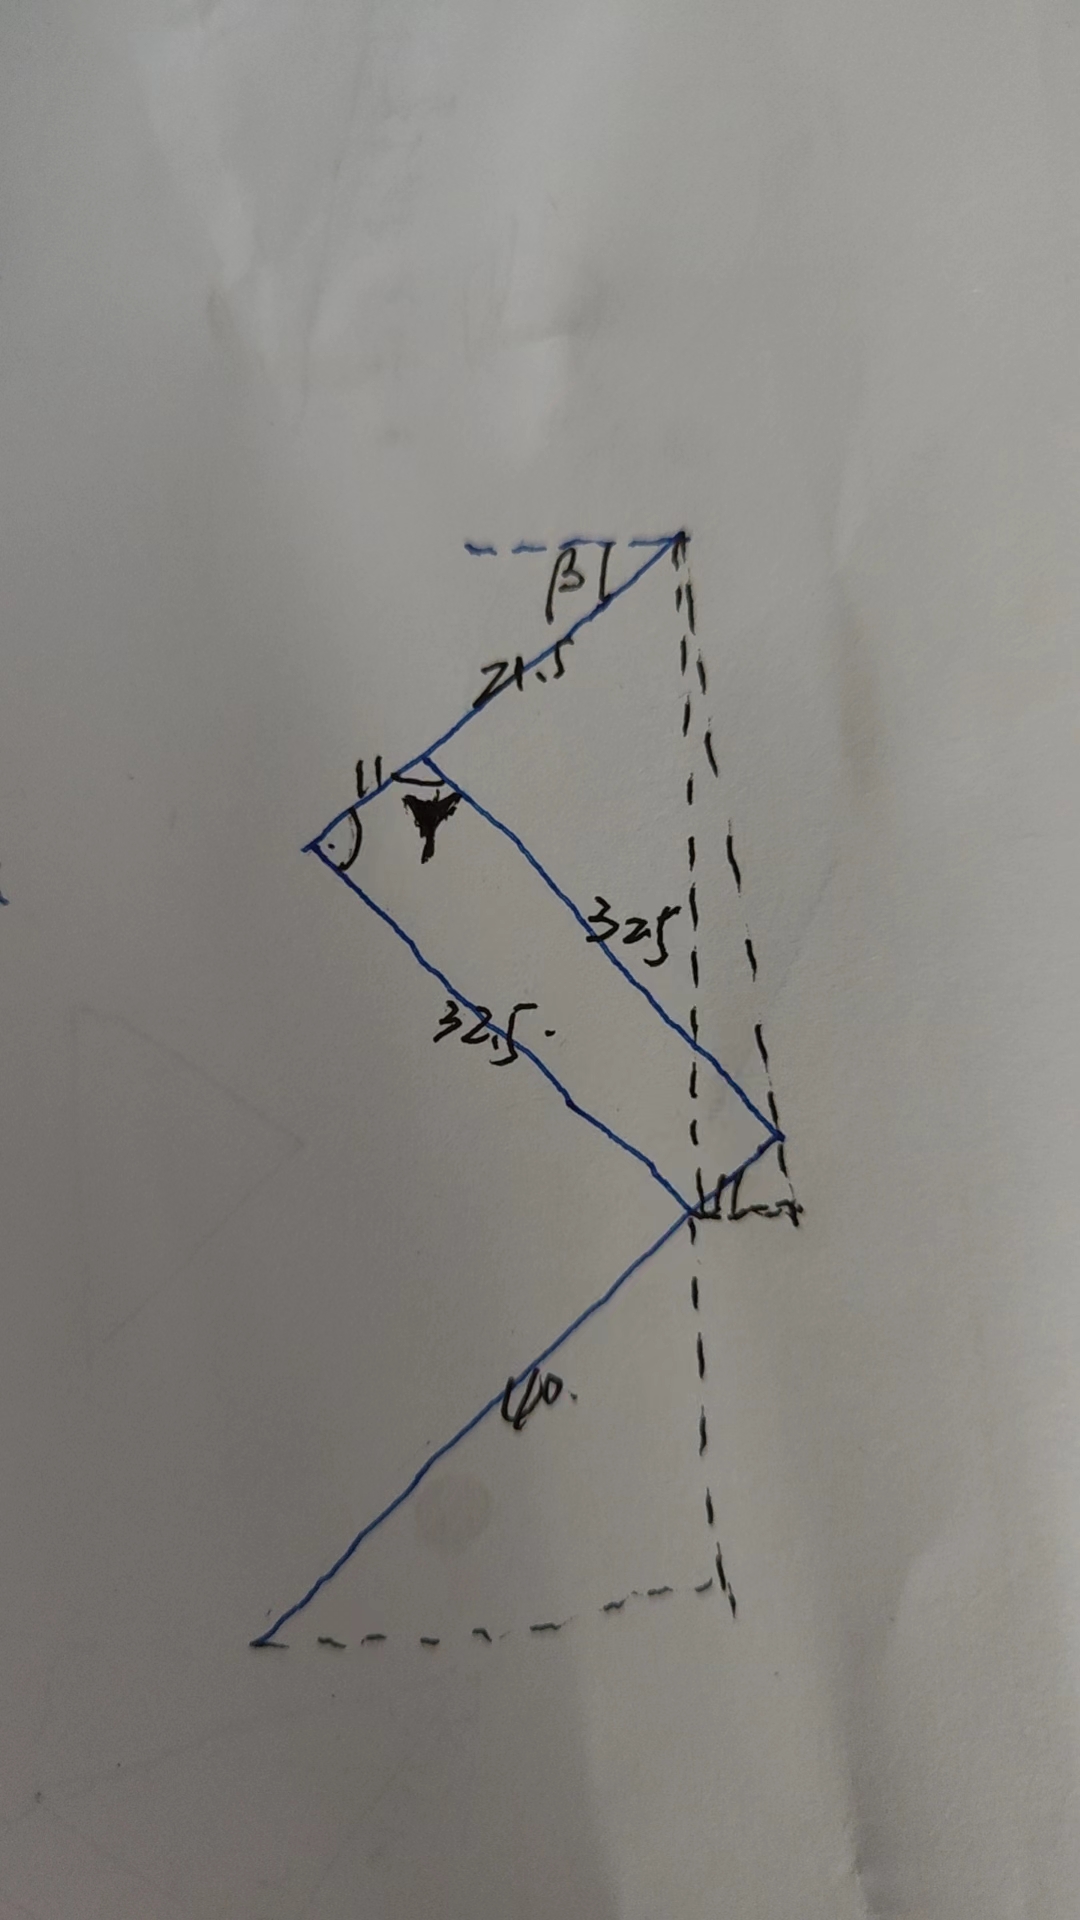 β
21.5
11
32.5
32.5.
11
40.